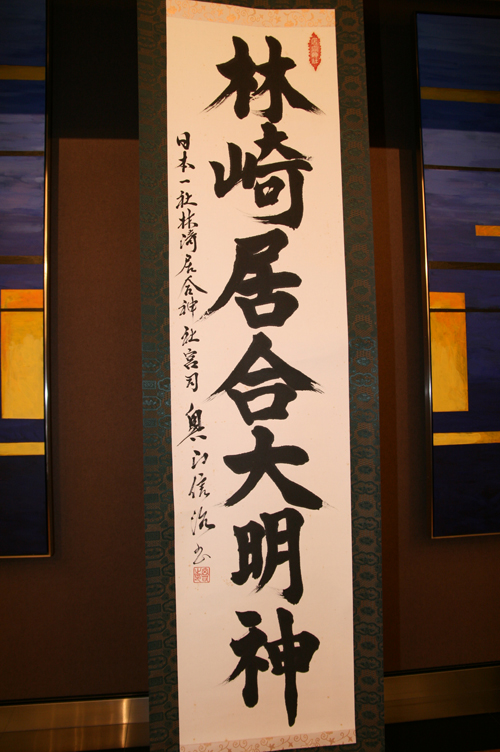 林崎居合大明神
日本一社林崎居合神社宮司 奥山信治書